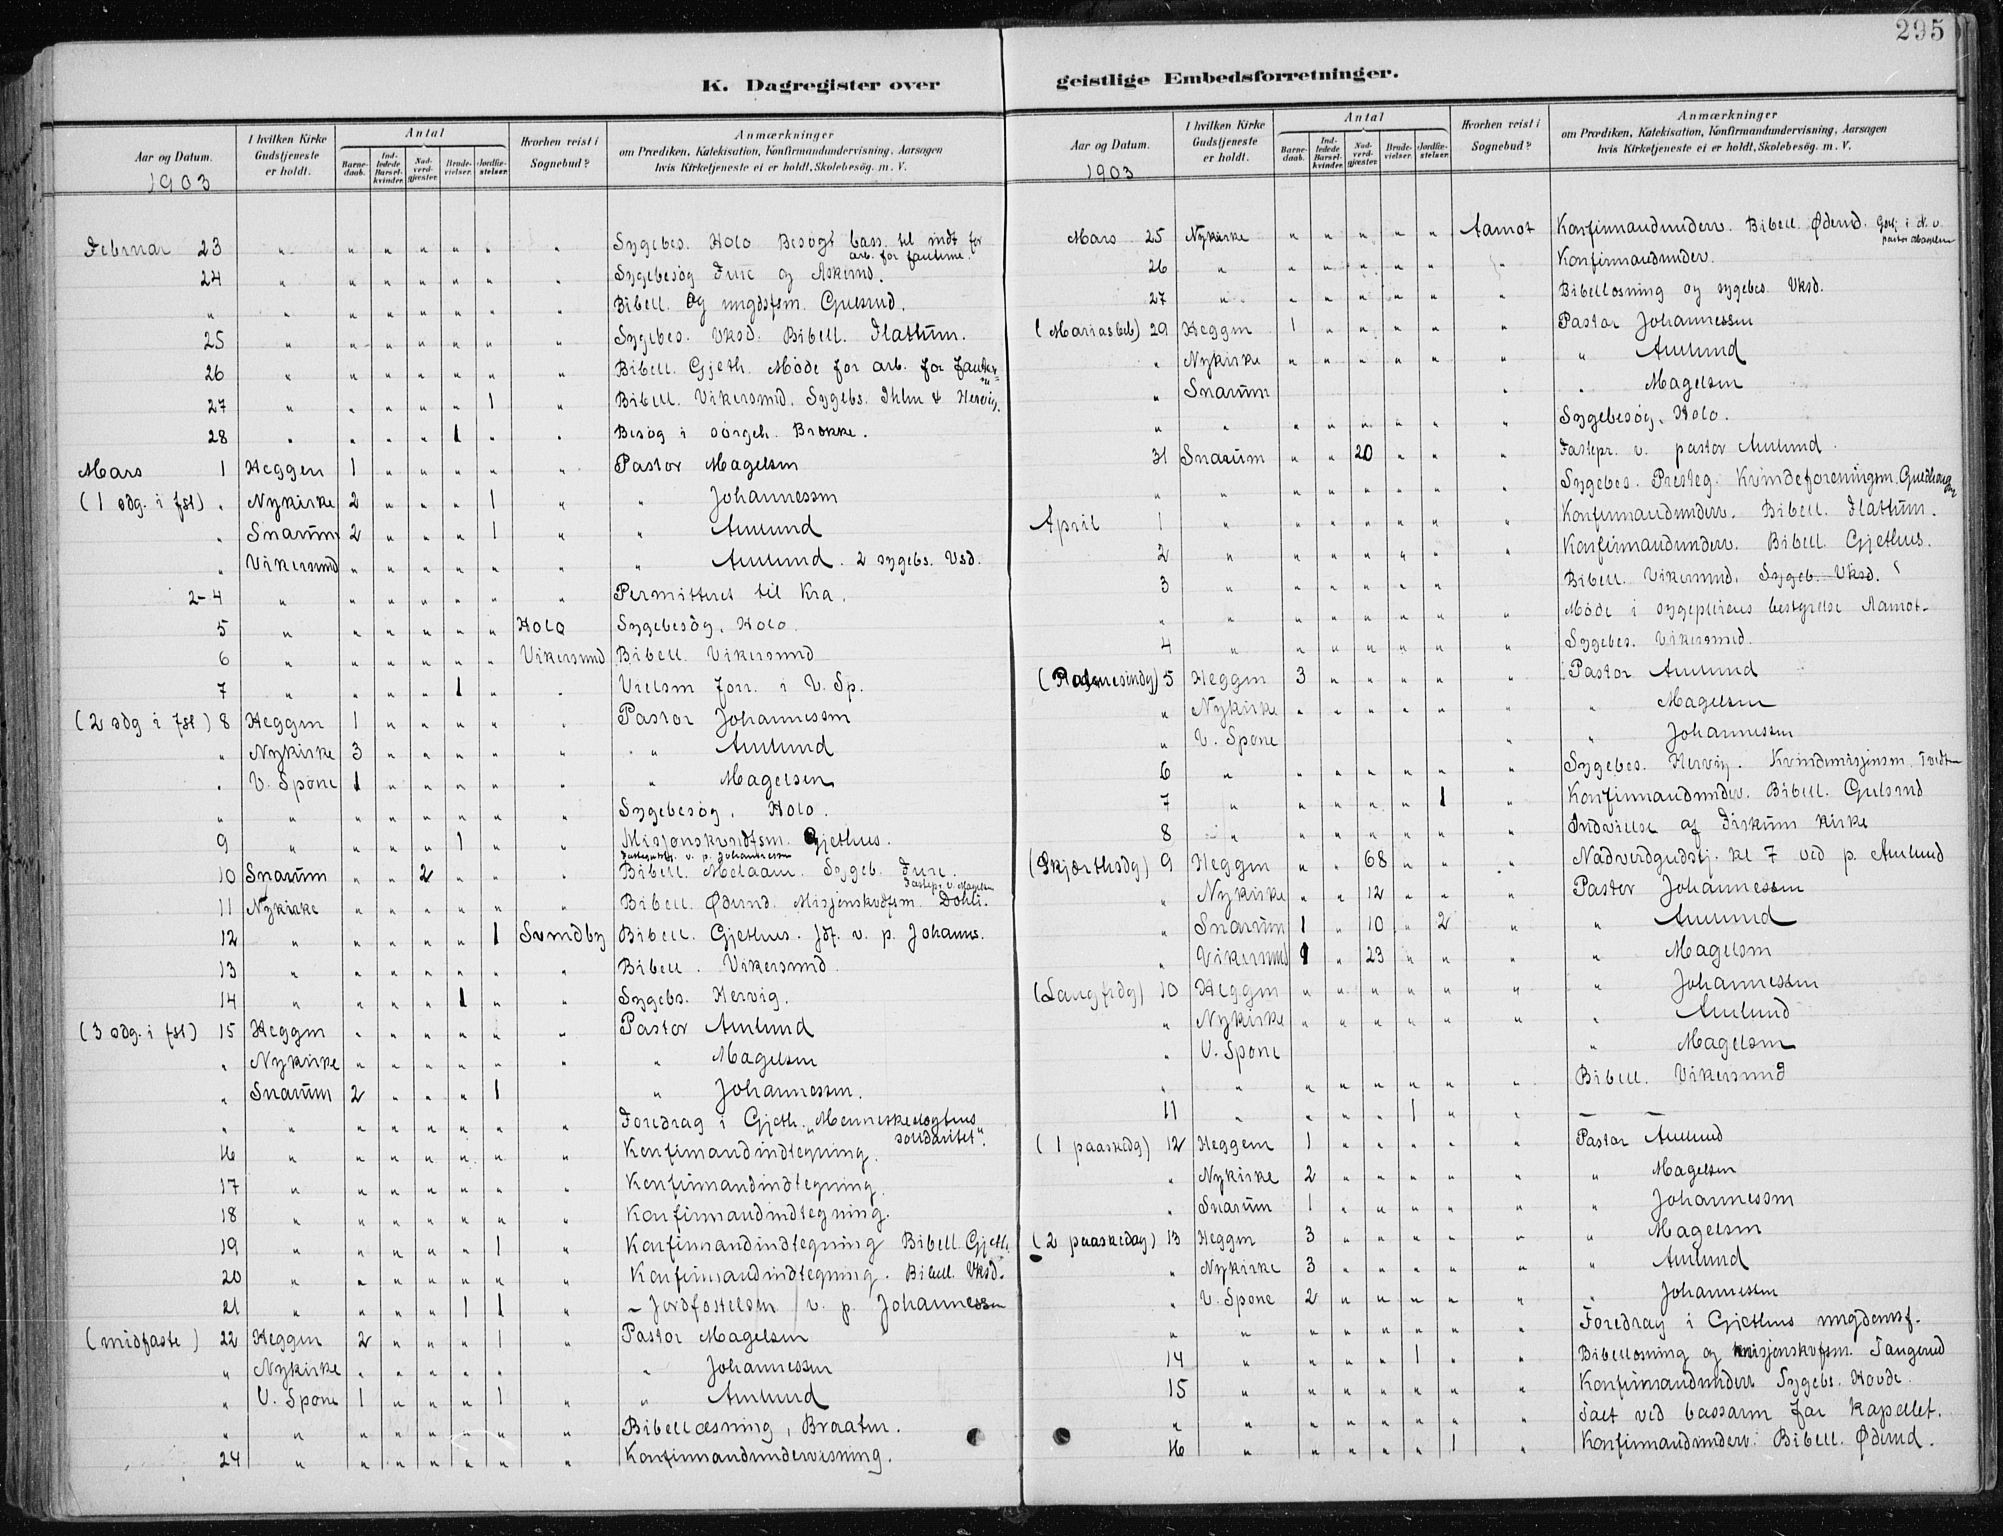 295
K. Dagregister over
geistlige Embedsforretninger.
Aar og Datum.
I hvilken Kirke Gudstjeneste er holdt.
Antal
Barnedaab.
Indledede Barselkvinder.
Nadverdgjester.
Brudevielser.
Jordfæstelser.
Hvorhen reist i Sognebud?
Anmærkninger
om Prædiken, Katekisation, Konfirmandundervisning, Aarsagen
hvis Kirketjeneste ei er holdt, Skolebesøg. m. V.
1903
Februar 23 " " " " " " " Sygebes. Holo Besøgt bass. til indt for
arb. for fantene.
24 " " " " " " " Sygebesøg Fure og Askerud.
" " " " " " " " Bibell. og ungdsfsm. Gulsrud.
25 " " " " " " " Sygebes. Vksd. Bibell. Flattum.
26 " " " " " " " Bibell. Gjeth. Møde for arb. for
27 " " " " " 1 " Bibell. Vikersund. Sygebs. Ihlen & Hervig.
28 " " " " 1 " " Besøg i sörgeh. Brekke.
Mars 1 Heggen 1 " " " " " Pastor Magelsen
(1 sdg. i fst) " Nykirke 2 " " " 1 " " Johannessen
" Snarum 2 " " " 1 " " Amlund
" Vikersund " " " " " " " Amlund. 2 sygebs. Vsd.
2-4 " " " " " " " Permitteret til Kra.
5 " " " " " " Holo Sygebesøg, Holo.
6 " " " " " " Vikersund Bibell. Vikersund
7 " " " " 1 " " Vielsen forr. i V. Sp.
(2 sdg i fst) 8 Heggen 1 " " " " " Pastor Johannessen
" Nykirke 3 " " " " " " Amlund
" V. Spone 1 " " " " " " Magelsen
" " " " " " " " Sygebesøg, Holo.
9 " " " " 1 " " Misjonskvndfsm. Gjethus.
v. p. Johannessen
10 Snarum " " 2 " " " Bibell. Melaaen. Sygeb. Fure.
Fastepr. v. Magelsen
11 Nykirke " " " " " " Bibell. Øderud. Misjonskvdfsm. Dohli.
12 " " " " " 1 Svendby Bibell. Gjethus. Jdf. v. p. Johanns.
13 " " " " " " " Bibell. Vikersund.
14 " " " " 1 " " Sygebs. Hervig.
(3 sdg. i fst) 15 Heggen " " " " " " Pastor Amlund
" Nykirke " " " " " " " Magelsen
" Snarum 2 " " " 1 " " Johannessen.
" " " " " " " " Foredrag i Gjeth. "Menneskeslegtens
solidaritet".
16 " " " " " " " Konfirmandindtegning.
17 " " " " " " " Konfirmandindtegning.
18 " " " " " " " Konfirmandindtegning.
19 " " " " " 1 " Konfirmandindtegning Bibell. Gjeth.
20 " " " " " " " Konfirmandindtegning. Bibell. Vksd.
21 " " " " 1 1 " – Jordfæstelsen v. p. Johannessen
(midfaste) 22 Heggen 2 " " " 1 " Pastor Magelsen
" Nykirke " " " " " " " Johannessen
" V. Spone 1 " " " 1 " " Amlund
" " " " " " " " Bibellæsning, Braaten.
24 " " " " " " " Konfirmandundervisning.
Aar og Datum.
I hvilken Kirke Gudstjeneste er holdt.
Antal
Barnedaab.
Indledede Barselkvinder.
Nadverdgjester.
Brudevielser.
Jordfæstelser.
Hvorhen reist i Sognebud?
Anmærkninger
om Prædiken, Katekisation, Konfirmandundervisning, Aarsagen
hvis Kirketjeneste ei er holdt, Skolebesøg. m. V.
1903
Mars 25 Nykirke " " " " " Aamot Konfirmandunderv. Bibell. Øderud. Gstj. i N. v.
pastor Magelsen
26 " " " " " " " Konfirmandunderv.
27 " " " " " " " Bibellæsning og sygebes. Vksd.
(Mariasbeb) 29 Heggen 1 " " " " " Pastor Johannessen
" Nykirke " " " " " " " Amlund
" Snarum " " Magelsen
" " " " " " " " Sygebesøg, Holo.
31 Snarum " " 20 " " " Fastepr. v. pastor Amlund.
" " " " " " " " Sygebes. Presteg. Kvindeforeningen
April 1 " " " " " " " Konfirmandunderv. Bibell. Flattum.
2 " " " " " " " Konfirmandunderv. Bibell. Gjethus.
3 " " " " " " " Bibell. Vikersund. Sygeb. Vksd.
" " " " " " " " Møde i sygepleiens bestyrelse Aamot.
4 " " " " " " " Sygebes. Vikersund.
(Palmesøndg) 5 Heggen 3 " " " " " Pastor Amlund
" Nykirke " " " " " " " Magelsen
" V. Spone " " Johannessen
6 " " " " " " " Sygebes. Hervig. Kvindemisjonsm. Tvedt
7 " " " " " 1 " Konfirmandunderv. Bibell. Gulsrud
8 " " " " " " " Indvielse af Fiskum kirke
(Skjærthsdg) 9 Heggen " " 68 " " " Nadverdgudstj. kl 7 ved p. Amlund
" Nykirke " " 12 " " " Pastor Johannessen
" Snarum 1 " 10 " 2 " " Amlund
" Vikersund 1 " 23 " " " " Magelsen
(Langfrdg) 10 Heggen " " " " " " " Johannessen
" Nykirke " " " " " " " Amlund
" V. Spone " Magelsen
" " " " " " " " Bibell. Vikersund
11 " " " " 1 " " – –
(1 paaskedg) 12 Heggen 1 " " " " " Pastor Amlund
" Nykirke 2 " " " " " " Magelsen
" Snarum 1 " " " " " " Johannessen
(2 paaskedag) 13 Heggen 3 " " " " " " Magelsen
" Nykirke 3 " " " " " " Amlund
" V. Spone 2 " " " " " " Johannessen
" " " " " " " " Foredrag i Gjethus ungdomsf.
14 " " " " 1 " " Bibellæsning og misjonskvfsm. Tangerud
15 " " " " " " " Konfirmandunderv. Sygebs. Hovde.
" " " " " " " " Talt ved bassaren for kapellet.
16 " " " " " 1 " Konfirmandunderv. Bibell. Øderud.